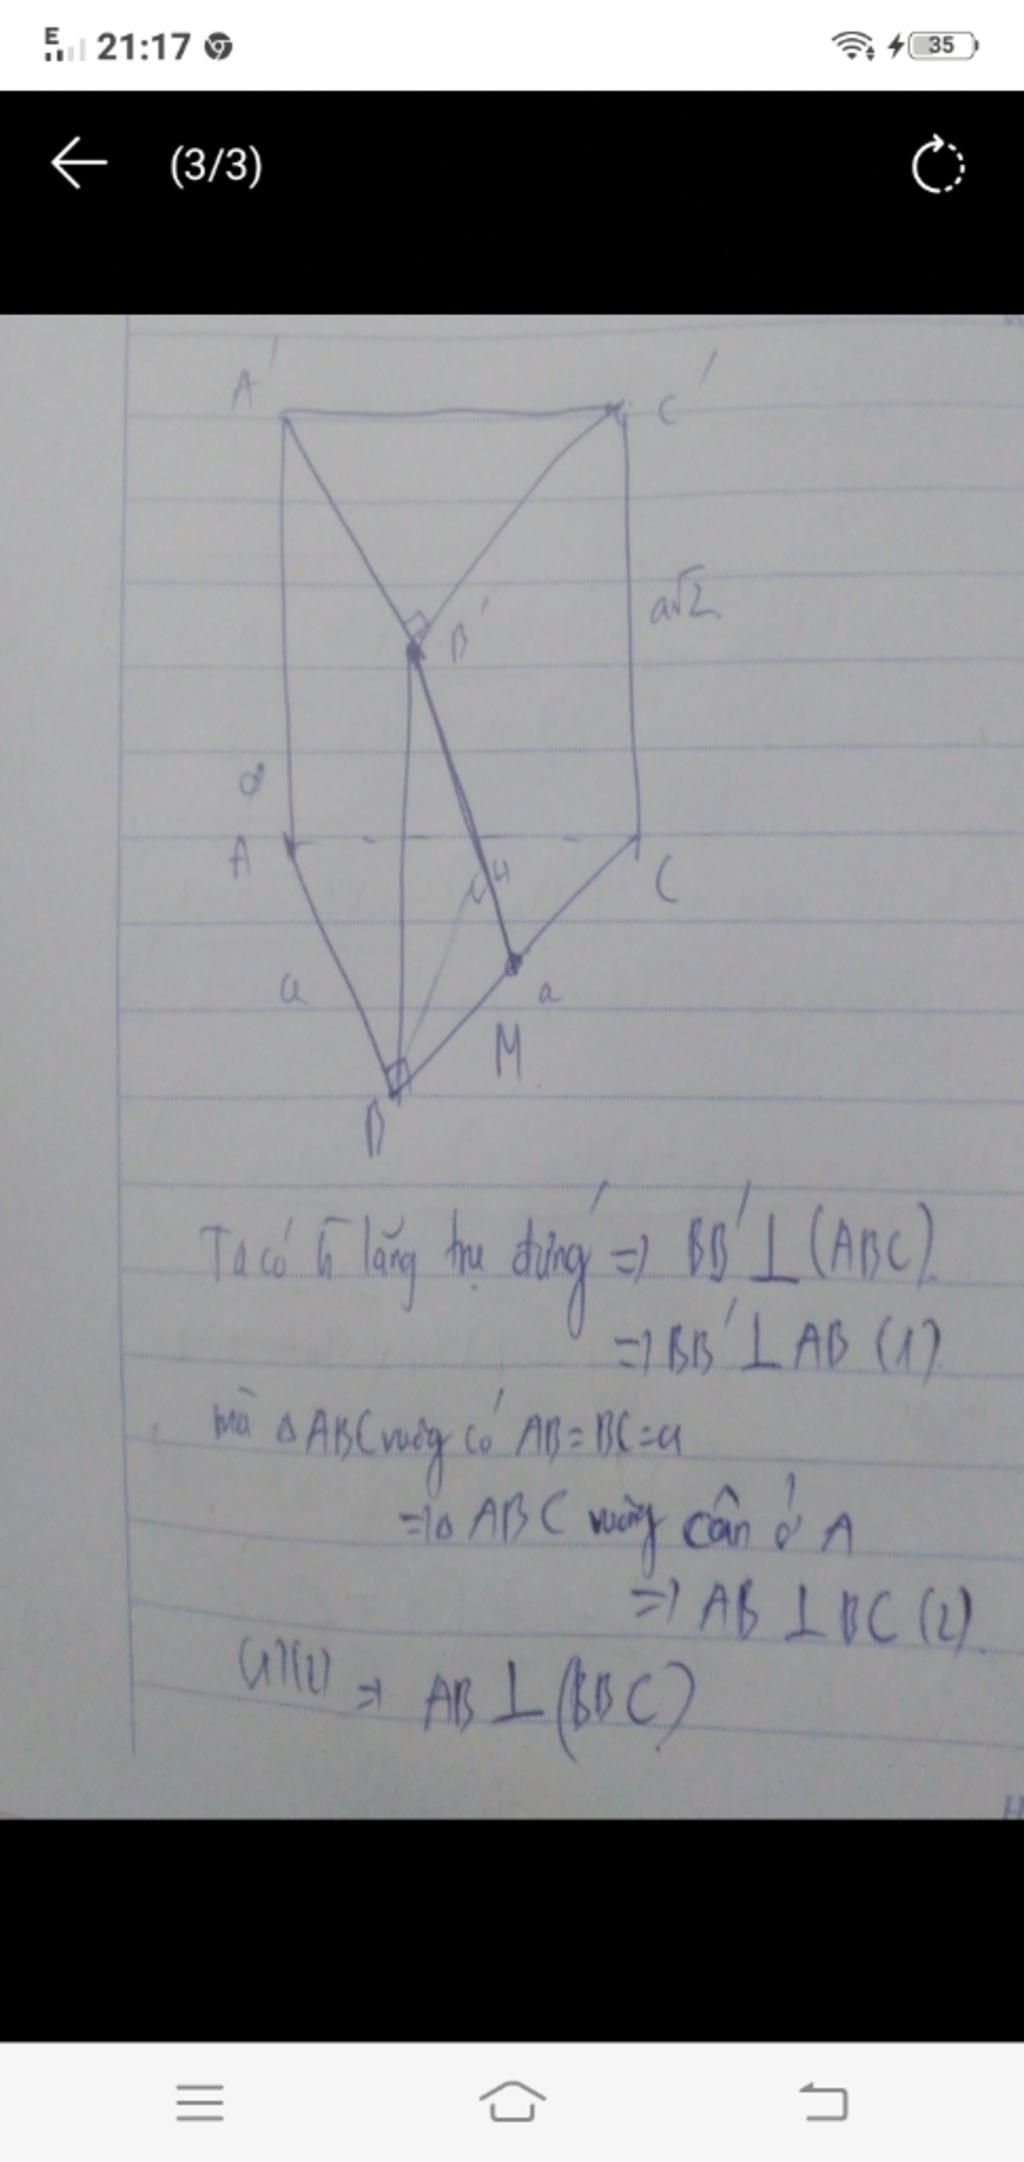 E 21:17 35
(3/3)
A' C'
a√2
B'
A C
H
a a
M
B
Ta có lăng trụ đứng => BB' ⊥ (ABC)
=> BB' ⊥ AB (1)
mà Δ ABC vuông có AB = BC = a
=> Δ ABC vuông cân ở A
=> AB ⊥ BC (2)
=> AB ⊥ (BB C)